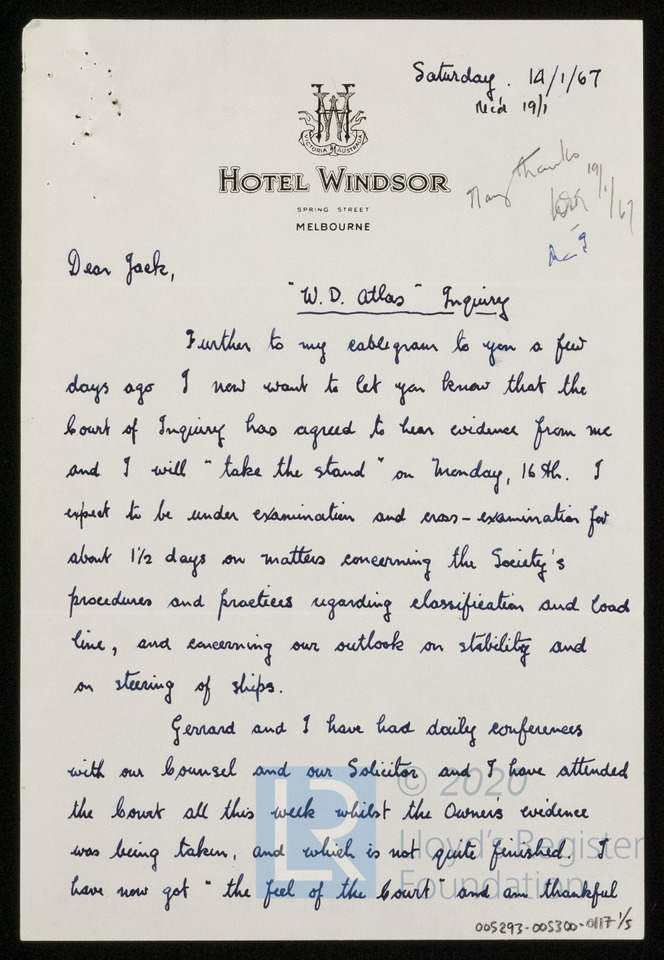 Saturday. 14/1/67
Rec'd 19/1
VICTORIA AUSTRALIA
HOTEL WINDSOR
SPRING STREET
MELBOURNE
Many thanks
19/1/67
Dear Jack,
"W. D. Atlas" Inquiry
Further to my cablegram to you a few
days ago I now want to let you know that the
Court of Inquiry has agreed to hear evidence from me
and I will "take the stand" on Monday, 16th. I
expect to be under examination and cross-examination for
about 1½ days on matters concerning the Society's
procedures and practices regarding classification and load
line, and concerning our outlook on stability and
on steering of ships.
Gerrard and I have had daily conferences
with our Counsel and our Solicitor and I have attended
the Court all this week whilst the Owner's evidence
was being taken, and which is not quite finished. I
have now got "the feel of the Court" and am thankful
LR © 2020
Lloyd's Register
Foundation
005293-005300-0117 1/5